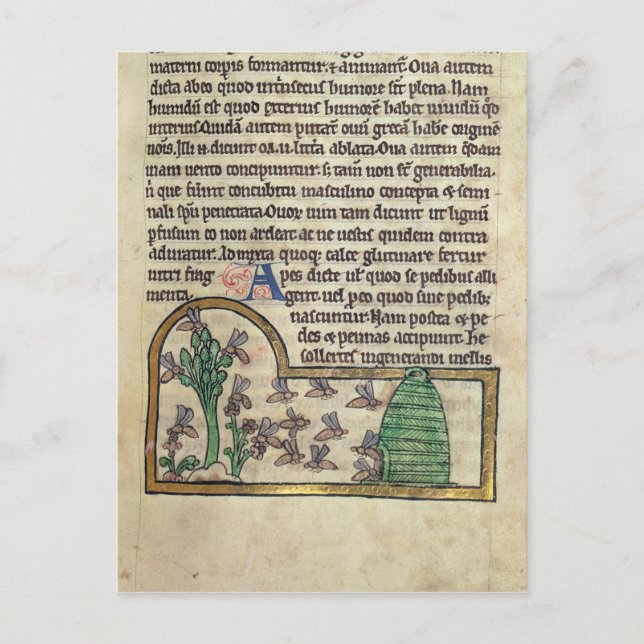 materni corpis formantur. ⁊ animant. Oua autem
dicta abeo quod intrinsecus humore sīt plena. Nam
humidū est quod exterius humorē habet uiuidū qđ
interius. Quidā autem putāt ouū grecā habē originē
nois. Illi .n. dicunt oa .u. littā ablata. Oua autem qđam
inani uento concipiuntur. s; tam̄ non sīt generabilia.
n̄ que fūint concubitu masculino concepta ⁊ semi
nali spū penetrata. Ouoꝝ uim tam dicunt ut lignū
perfusum eo non ardeat ac ne uestis quidem contra
aduratur. Admixta quoq; calce glutinare fertur
uitri frag
menta.
Apes dicte ul' quod se pedibus alli
gent. uel p eo quod sine pedib;
nascuntur. Nam postea ⁊ pe
des ⁊ pennas accipiunt. He
sollertes ingenerandi mellis